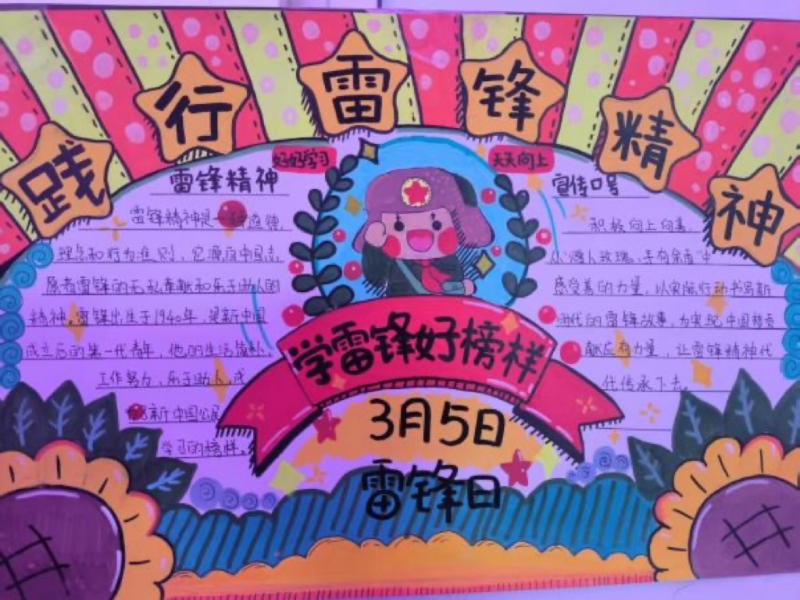 践行雷锋精神
好好学习
天天向上
雷锋精神
雷锋精神是一种道德
理念和行为准则，它源自中国志
愿者雷锋的无私奉献和乐于助人的
精神。雷锋出生于1940年，是新中国
成立后的第一代青年，他的生活简朴，
工作努力，乐于助人，成
新中国公民
学习的榜样。
宣传口号
积极向上向善
人玫瑰，手有余香"中
感受善的力量，以实际行动书写新
时代的雷锋故事，为实现中国梦贡
献应有力量，让雷锋精神代
代传承下去。
学雷锋好榜样
3月5日
雷锋日